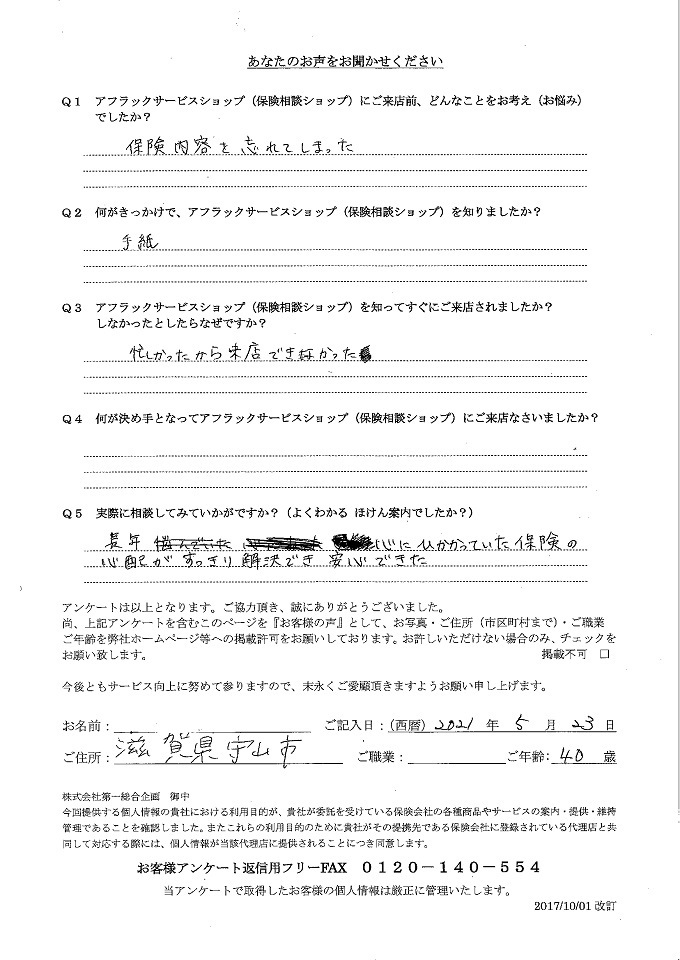 あなたのお声をお聞かせください
Q1 アフラックサービスショップ（保険相談ショップ）にご来店前、どんなことをお考え（お悩み）
でしたか？
保険内容を忘れてしまった
Q2 何がきっかけで、アフラックサービスショップ（保険相談ショップ）を知りましたか？
手紙
Q3 アフラックサービスショップ（保険相談ショップ）を知ってすぐにご来店されましたか？
しなかったとしたらなぜですか？
忙しかったから来店できなかった
Q4 何が決め手となってアフラックサービスショップ（保険相談ショップ）にご来店なさいましたか？
Q5 実際に相談してみていかがですか？（よくわかる ほけん案内でしたか？）
長年 悩んでいた 心にひっかかっていた保険の
心配がすっきり解決でき安心できた
アンケートは以上となります。ご協力頂き、誠にありがとうございました。
尚、上記アンケートを含むこのページを『お客様の声』として、お写真・ご住所（市区町村まで）・ご職業
ご年齢を弊社ホームページ等への掲載許可をお願いしております。お許しいただけない場合のみ、チェックを
お願い致します。 掲載不可 □
今後ともサービス向上に努めて参りますので、末永くご愛顧頂きますようお願い申し上げます。
お名前： ご記入日：（西暦）2021 年 5 月 23 日
ご住所：滋賀県守山市 ご職業： ご年齢：40 歳
株式会社第一総合企画 御中
今回提供する個人情報の貴社における利用目的が、貴社が委託を受けている保険会社の各種商品やサービスの案内・提供・維持
管理であることを確認しました。またこれらの利用目的のために貴社がその提携先である保険会社に登録されている代理店と共
同して対応する際には、個人情報が当該代理店に提供されることにつき同意します。
お客様アンケート返信用フリーFAX 0120－140－554
当アンケートで取得したお客様の個人情報は厳正に管理いたします。
2017/10/01 改訂